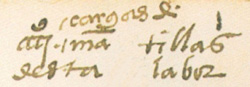 cargas de
iiijº. ima tillas
desta labor